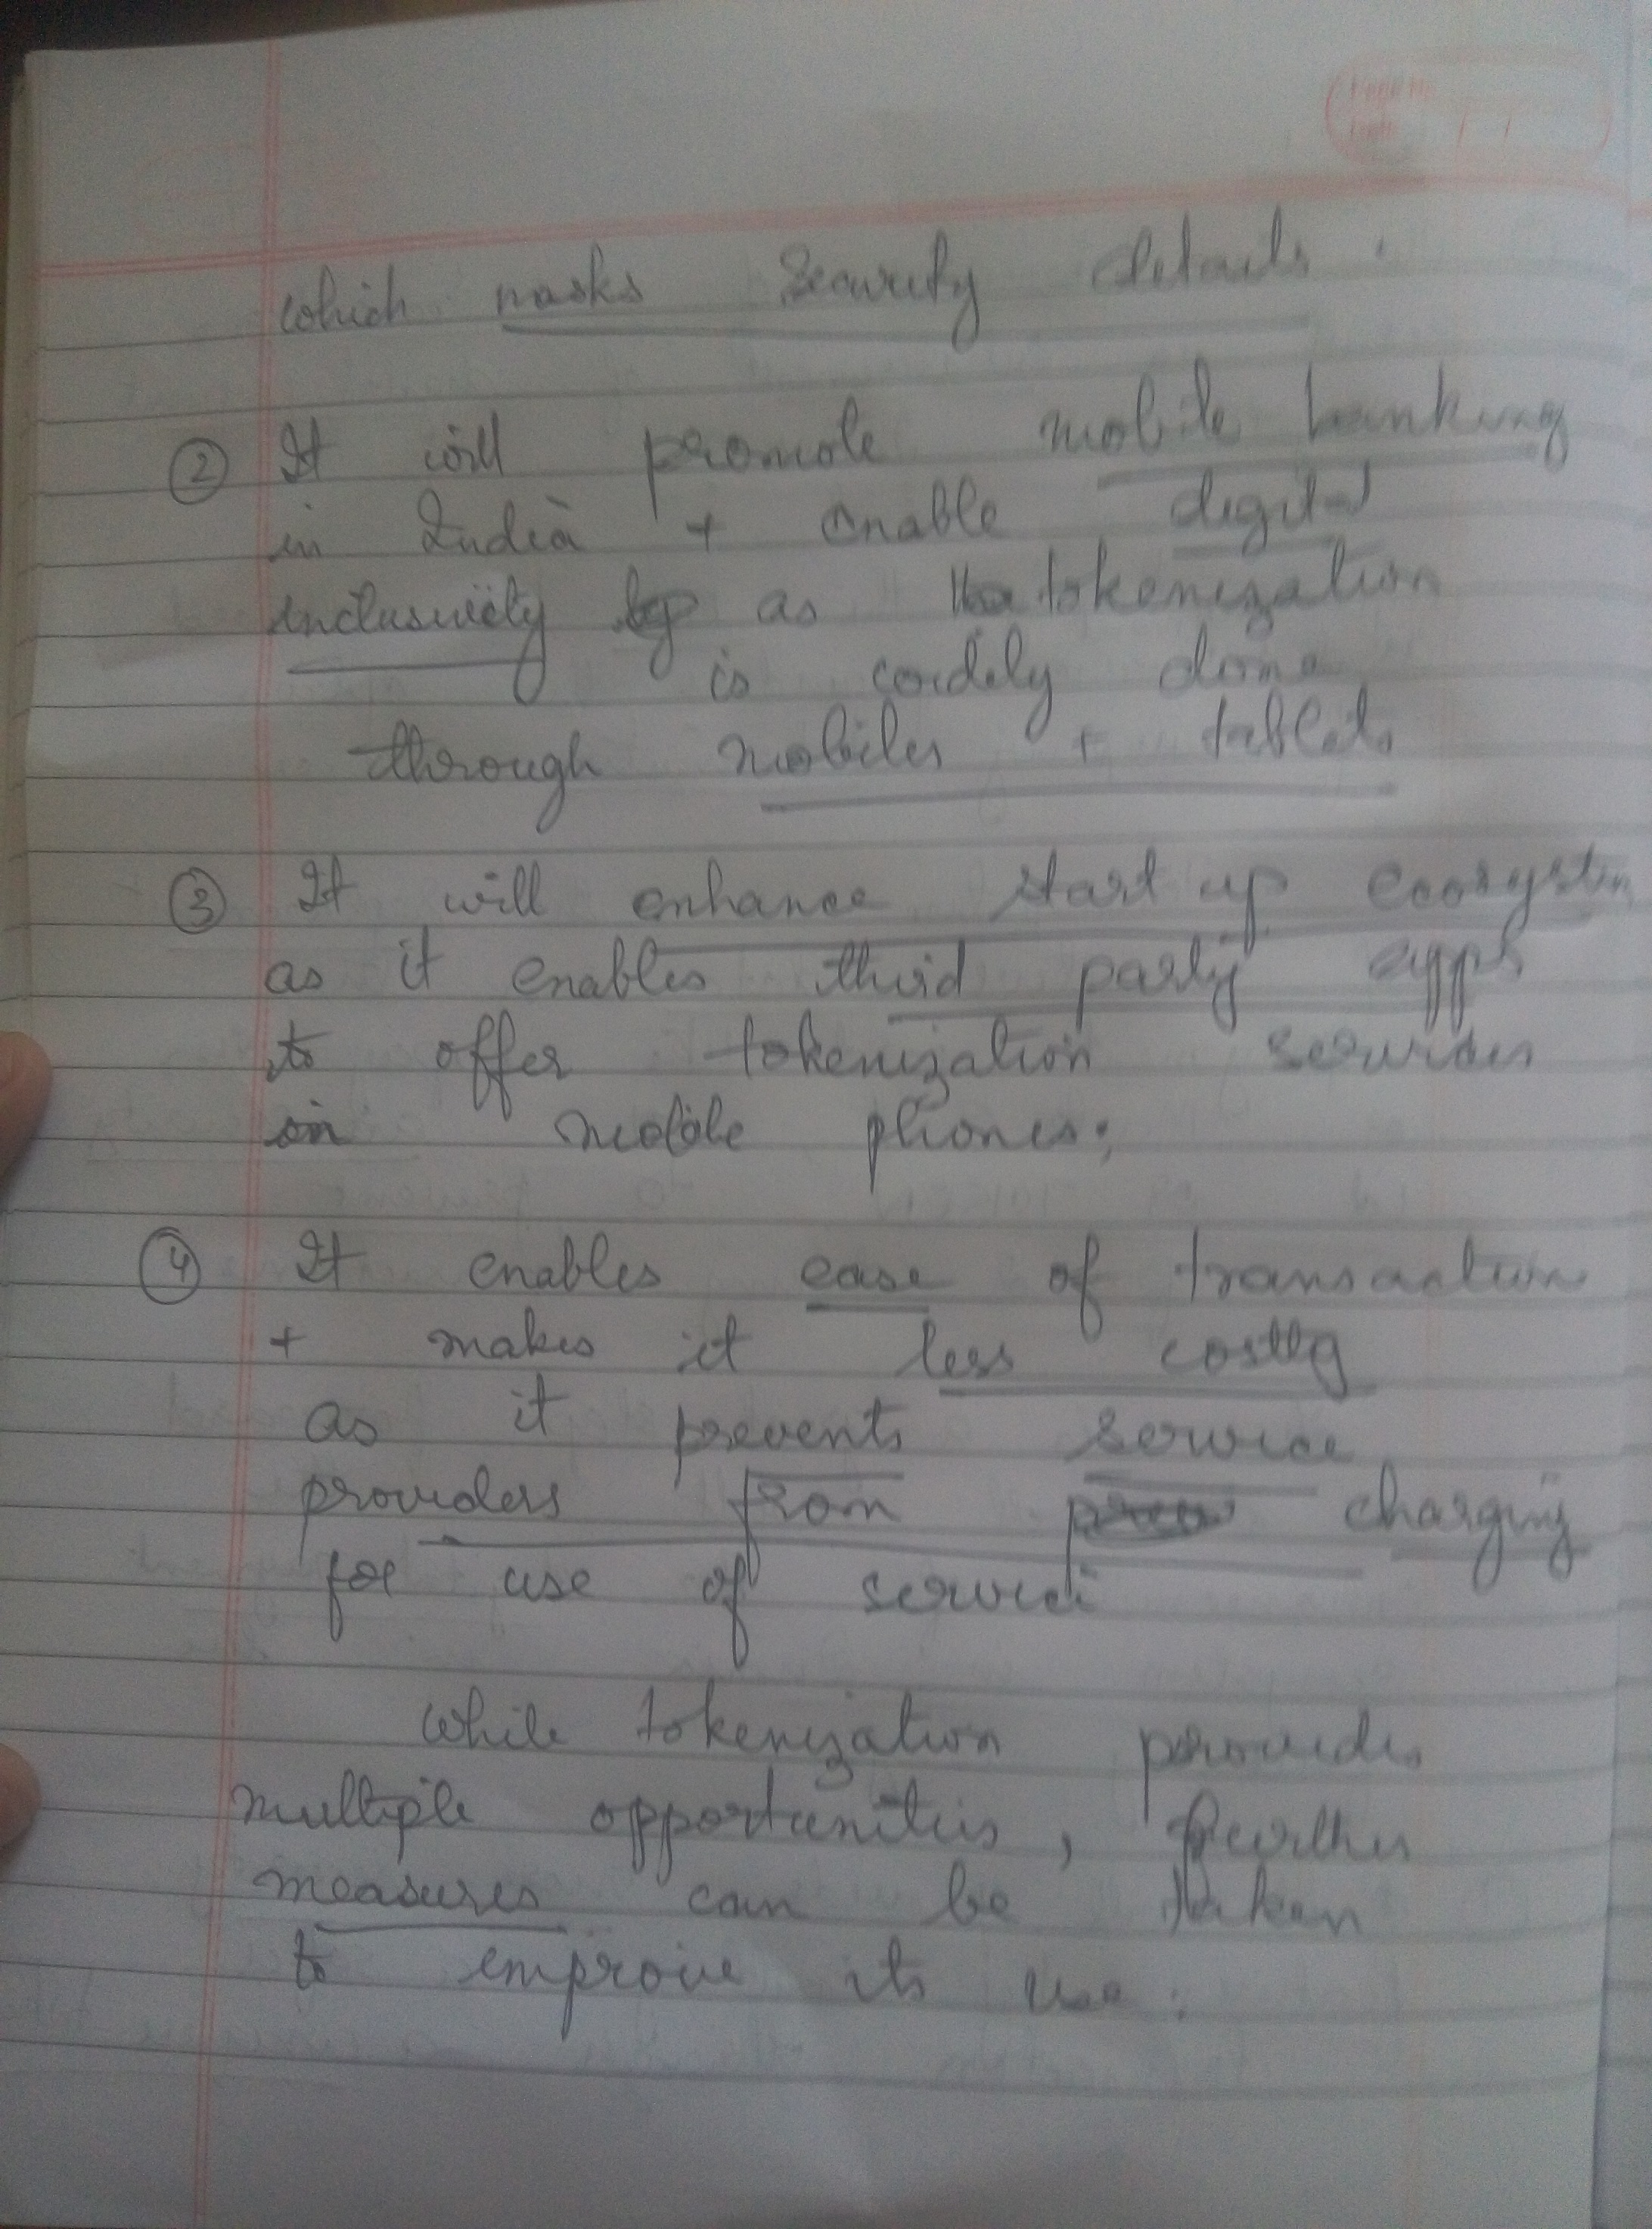 which masks security details.
② It will promote mobile banking
in India + enable digital
inclusivity as tokenization
is done
through mobiles + tablets
③ It will enhance start up ecosystem
as it enables third party apps
to offer tokenization services
in mobile phones.
④ It enables ease of transaction
+ makes it less costly
as it prevents service
providers from charging
for use of service
While tokenization provides
multiple opportunities, further
measures can be taken
to improve its use.